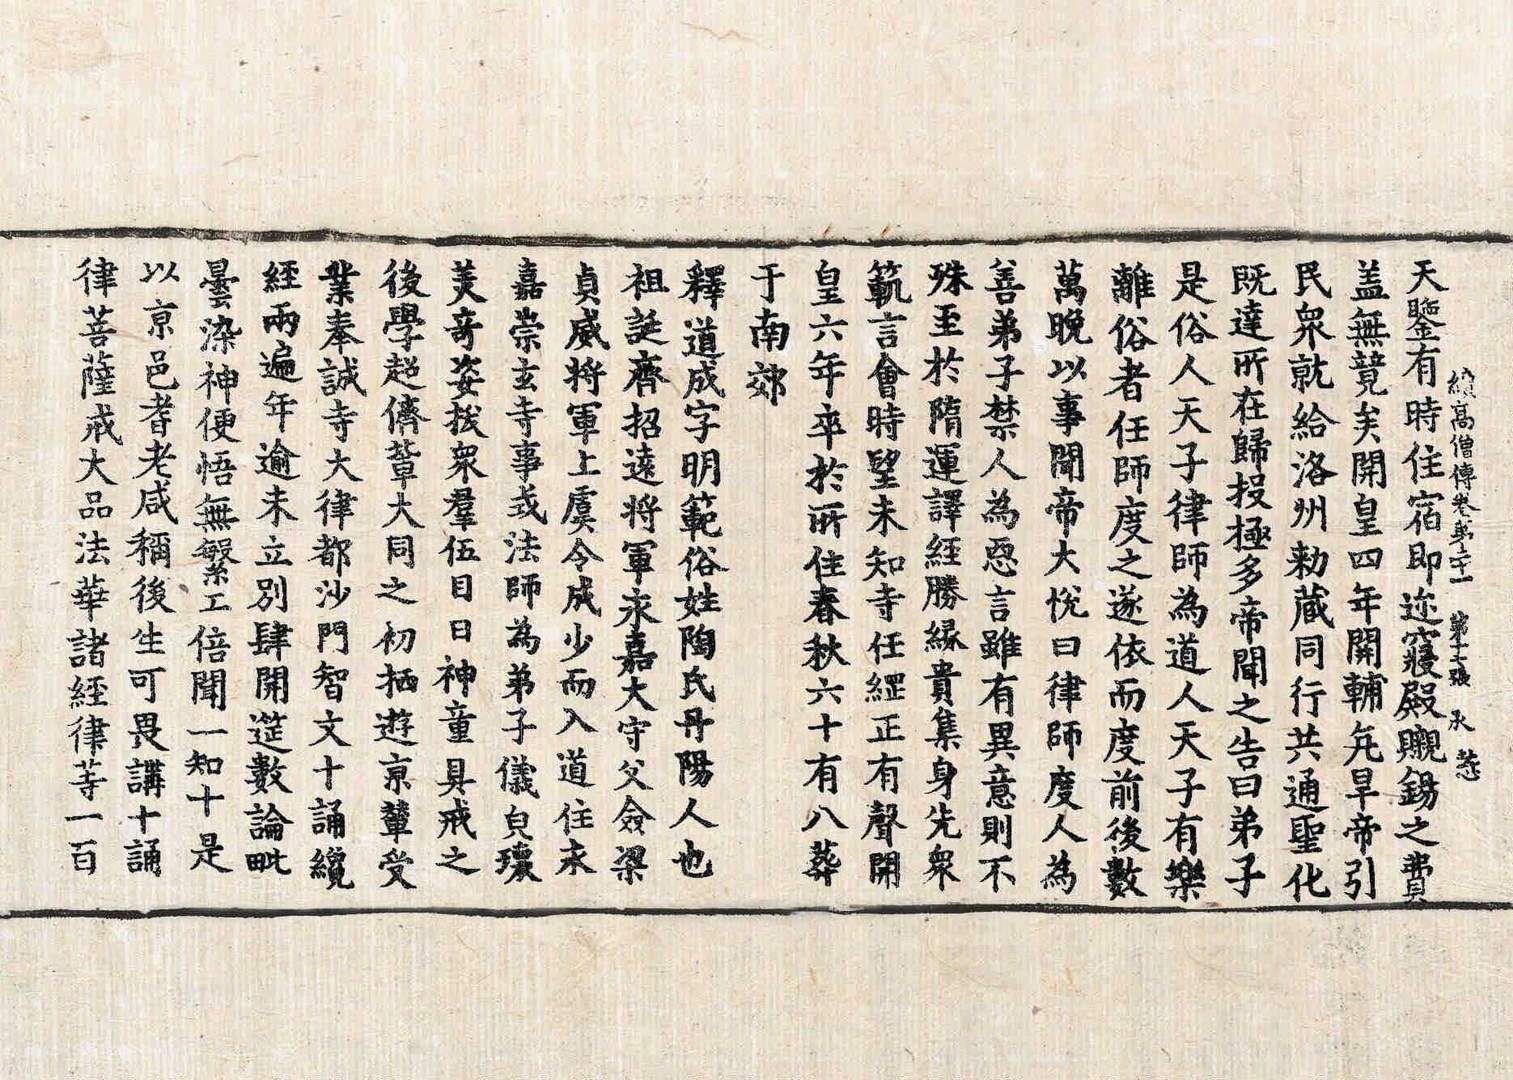 續高僧傳卷第二十一　第十七張　承　慈
天鑒有時住宿即迩寢殿䞋錫之費
盖無競矣開皇四年關輔亢旱帝引
民衆就給洛州勑藏同行共通聖化
既達所在歸投極多帝聞之告曰弟子
是俗人天子律師為道人天子有樂
離俗者任師度之遂依而度前後數
萬晚以事聞帝大悅曰律師度人為
善弟子禁人為惡言雖有異意則不
殊至於隋運譯經勝緣貴集身先衆
範言會時望未知寺任綱正有聲開
皇六年卒於所住春秋六十有八葬
于南郊
釋道成字明範俗姓陶氏丹陽人也
祖誕齊招遠將軍永嘉大守父僉梁
貞威將軍上虞令成少而入道住永
嘉崇玄寺事式法師為弟子儀皃瓌
美奇姿拔衆羣伍目曰神童具戒之
後學超儕輩大同之初栖遊京輦受
業奉誠寺大律都沙門智文十誦纔
經兩遍年逾未立別肆開筵數論毗
曇染神便悟無繁工倍聞一知十是
以京邑耆老咸稱後生可畏講十誦
律菩薩戒大品法華諸經律等一百